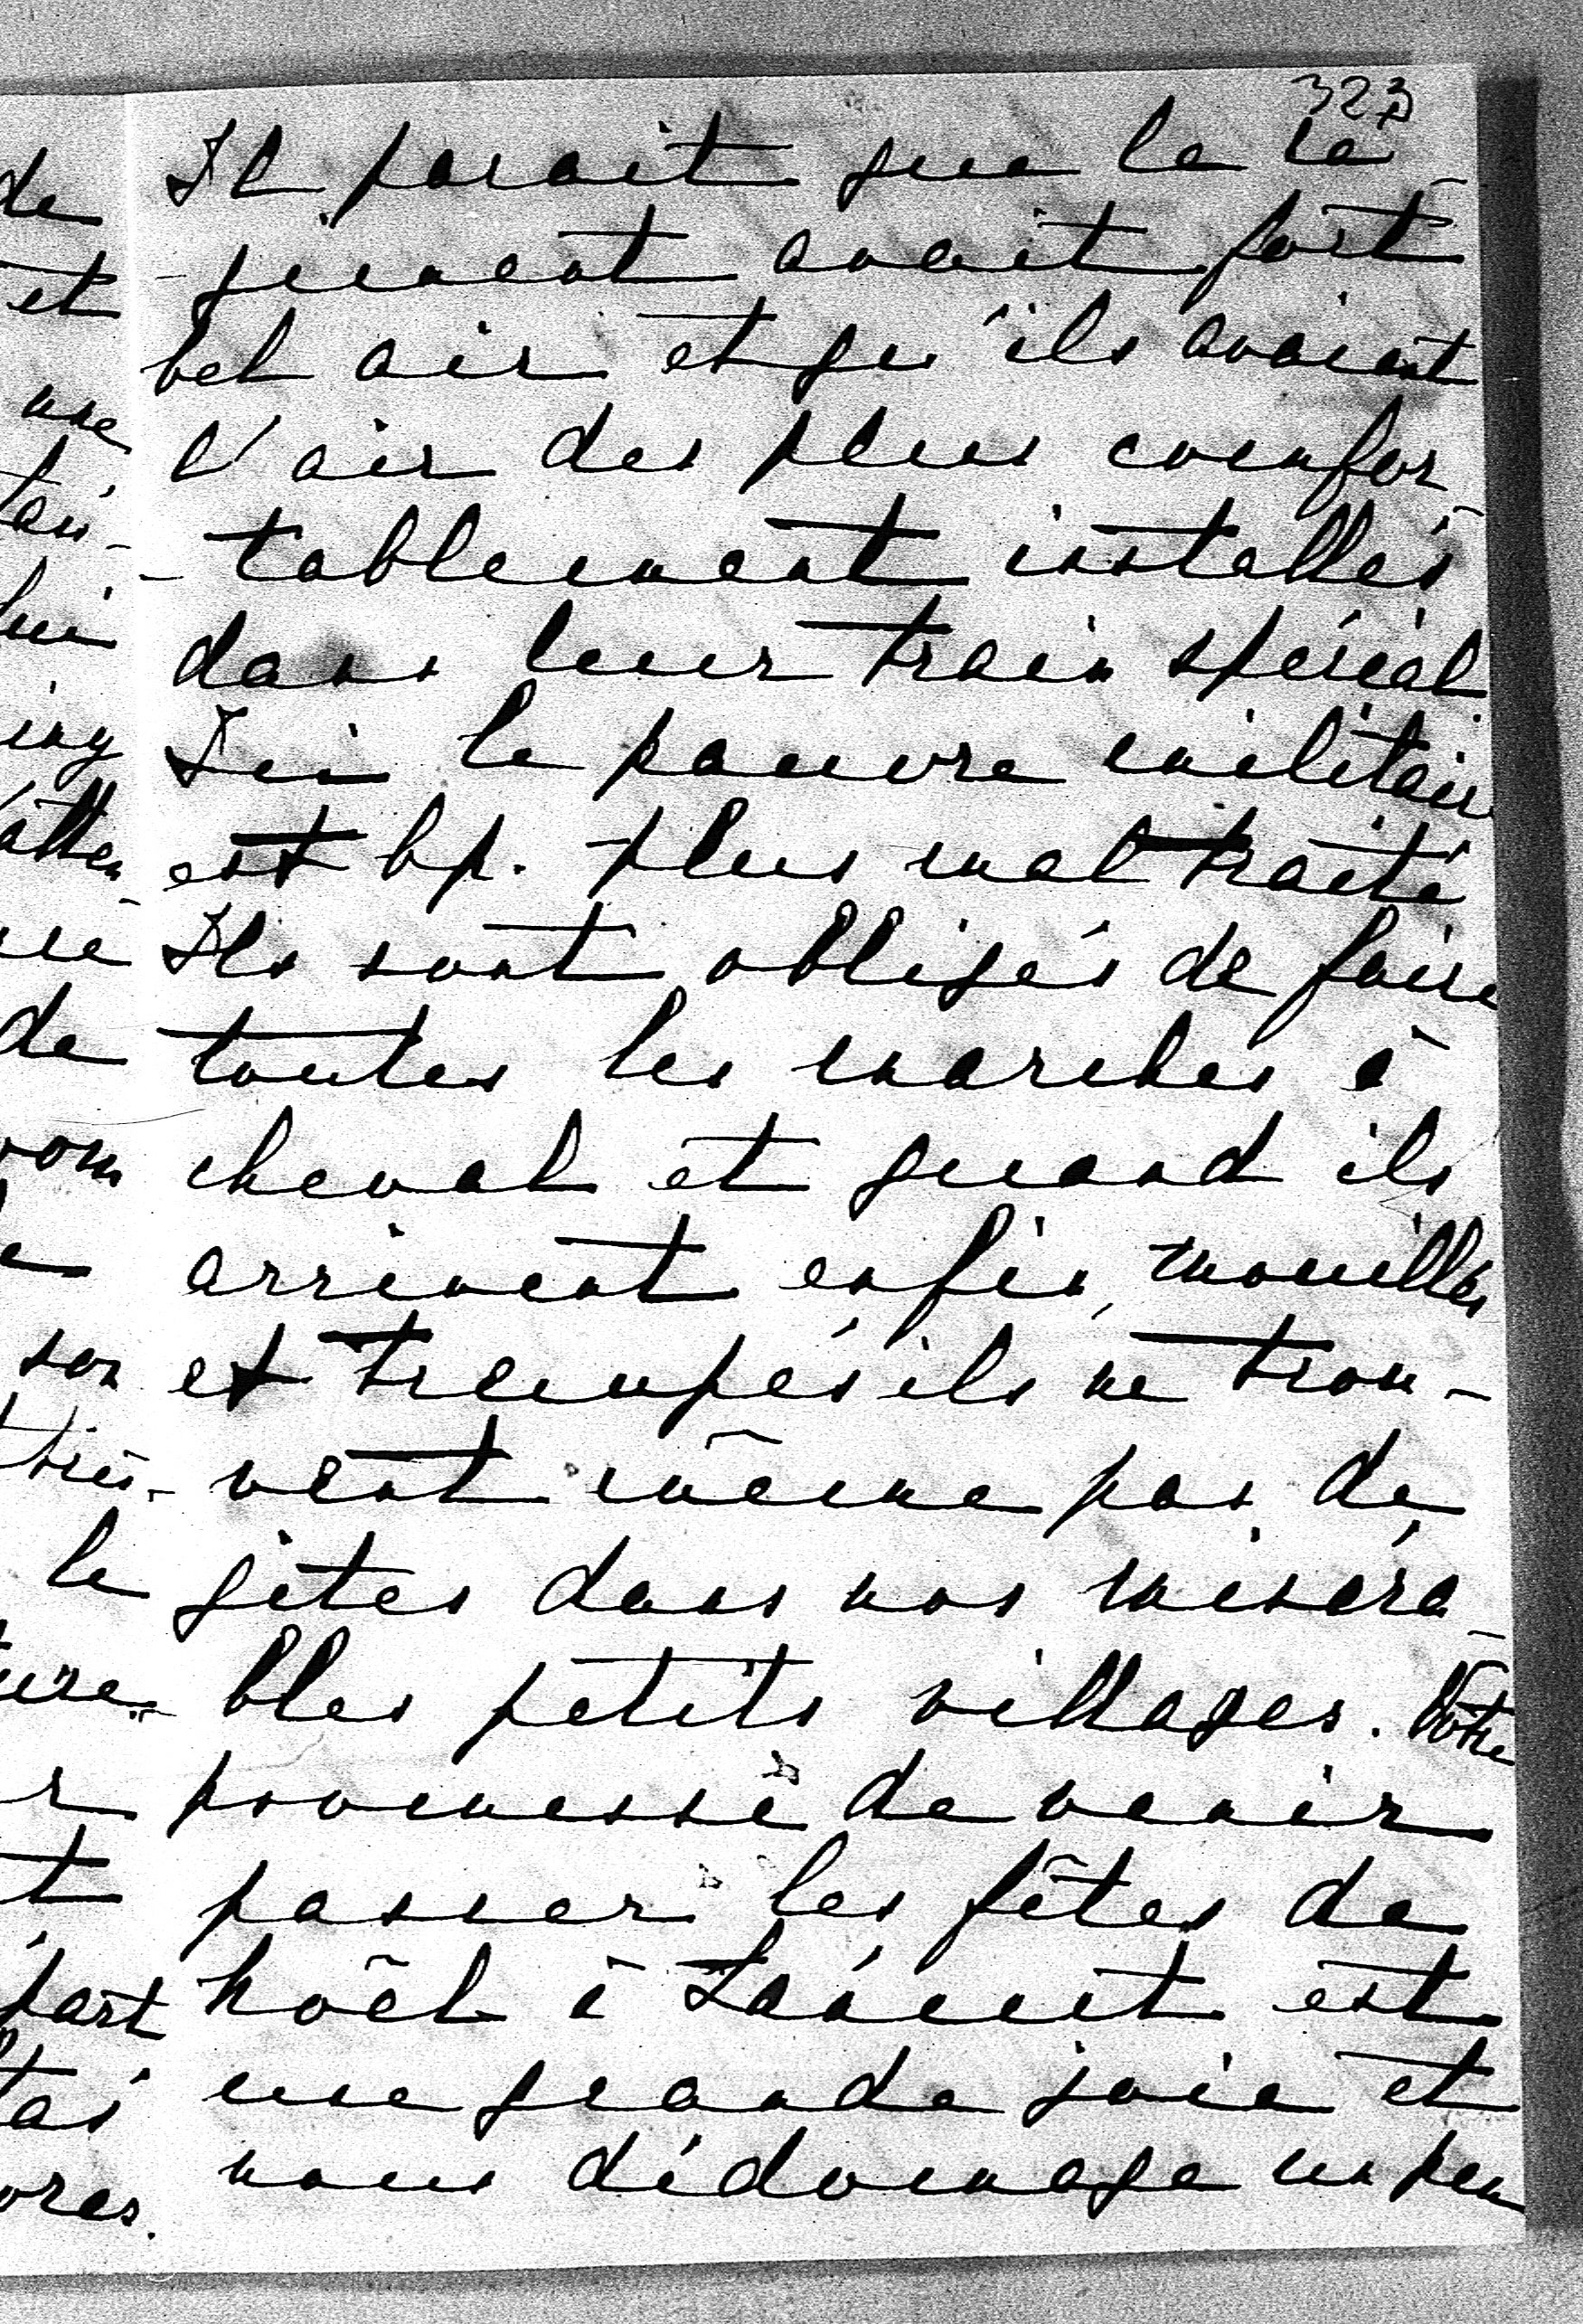 323
Il parait que le ré-
-giment avait fort
bel air et qu'ils avaient
l'air des plus comfor-
-tablement installés
dans leur train spécial.
Ici le pauvre militaire
est bp. plus mal traité
Ils sont obligés de faire
toutes les marches à
cheval et quand ils
arrivent enfin, mouillés
et trempés ils ne trou-
-vent même pas de
gîtes dans nos miséra-
bles petits villages. Votre
promesse de venir
passer les fêtes de
Noël à Łańcut est
une grande joie et
nous dédomage un peu
de
et
une
lui
ing
de
son
le
part